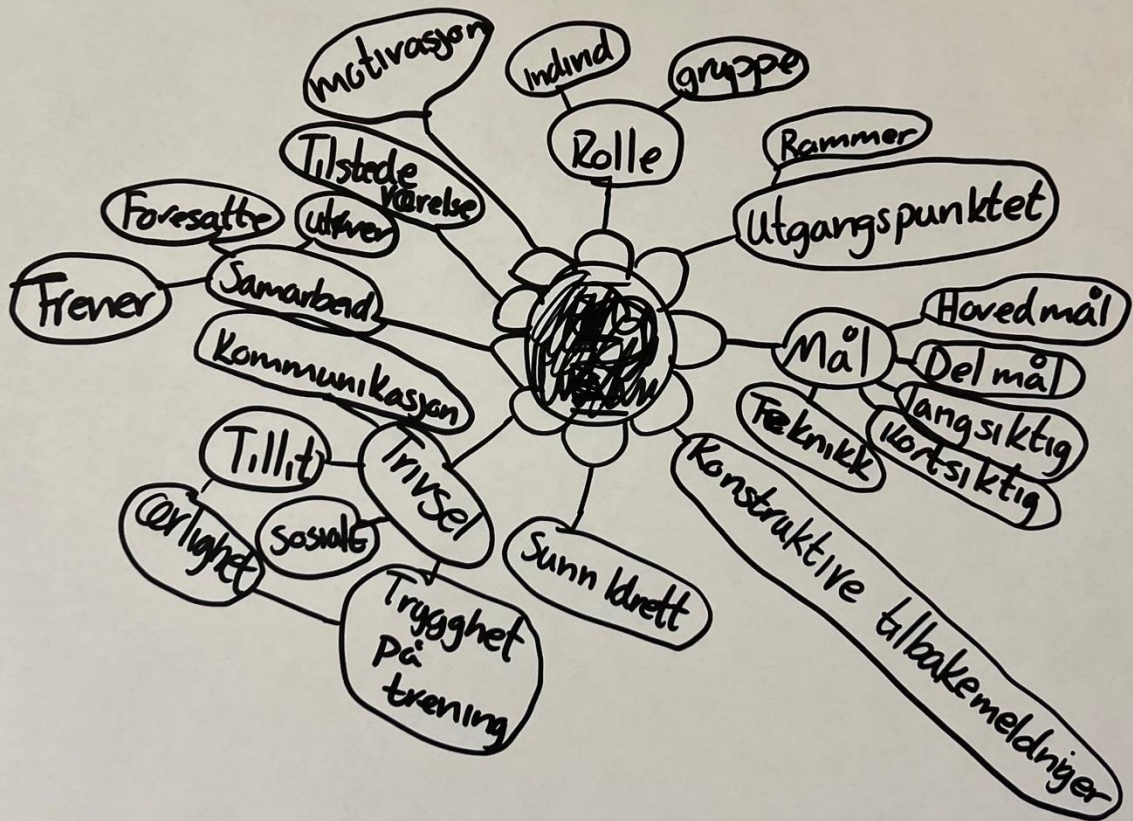 motivasjon
Individ
gruppe
Rolle
Rammer
Utgangspunktet
Tilstede
værelse
Foresatte
utøver
Trener
Samarbeid
Kommunikasjon
Hovedmål
Mål
Delmål
langsiktig
Kortsiktig
Teknikk
Tillit
Trivsel
Sosialt
Ærlighet
Trygghet
på
trening
Sunn Idrett
Konstruktive tilbakemeldniger